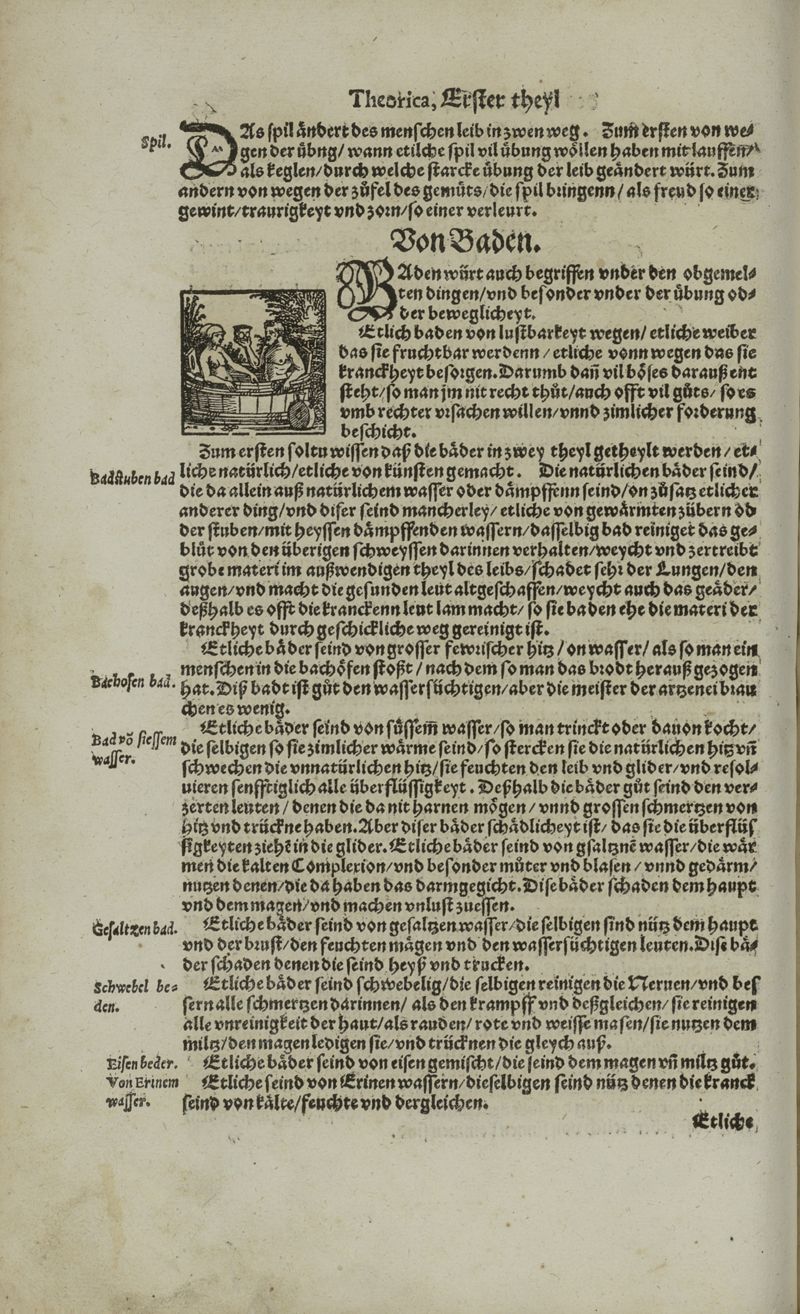 Theorica, Erster theyl
Spil.
DAs spil ändert des menschen leib in zwen weg. Zum ersten von we⸗
gen der übng/ wann etilche spil vil übung wöllen haben mit lauffen/
als keglen/ durch welche starcke übung der leib geändert würt. Zum
andern von wegen der zůfel des gemüts/ die spil bringenn/ als freud so einer
gewint/ traurigkeyt vnd zorn/ so einer verleurt.
Von Baden.
BAden würt auch begriffen vnder den obgemel⸗
ten dingen/ vnd besonder vnder der übung od⸗
der beweglicheyt.
Etlich baden von lustbarkeyt wegen/ etliche weiber
das sie fruchtbar werdenn/ etliche vonn wegen das sie
kranckheyt besorgen. Darumb dañ vil böses darauß ent
steht/ so man jm nit recht thůt/ auch offt vil gůts/ so es
vmb rechter vrsachen willen/ vnnd zimlicher forderung
beschicht.
Zum ersten soltu wissen daß die bäder in zwey theyl getheylt werden/ et⸗
Badstuben bad
liche natürlich/ etliche von künsten gemacht. Die natürlichen bäder seind/
die da allein auß natürlichem wasser oder dämpffenn seind/ on zůsatz etlicher
anderer ding/ vnd diser seind mancherley/ etliche von gewärmten zübern ob
der stuben/ mit heyssen dämpffenden wassern/ dasselbig bad reiniget das ge⸗
blüt von den überigen schweyssen darinnen verhalten/ weycht vnd zertreibt
grobe materi im außwendigen theyl des leibs/ schadet sehr der Lungen/ den
augen/ vnd macht die gesunden leut altgeschaffen/ weycht auch das geäder/
deßhalb es offt die kranckenn leut lam macht/ so sie baden ehe die materi der
kranckheyt durch geschickliche weg gereinigt ist.
Etliche bäder seind von grosser fewrischer hitz/ on wasser/ als so man ein
Bachofen bad.
menschen in die bachöfen stoßt/ nach dem so man das brodt herauß gezogen
hat. Diß badt ist gůt den wassersüchtigen/ aber die meister der artzenei brau
chen es wenig.
Bad vō siessem
wasser.
Etliche bäder seind von süssem̃ wasser/ so man trinckt oder dauon kocht/
die selbigen so sie zimlicher wärme seind/ so stercken sie die natürlichen hitz vñ
schwechen die vnnatürlichen hitz/ sie feuchten den leib vnd glider/ vnd resol⸗
uieren senfftiglich alle überflüssigkeyt. Deßhalb die bäder gůt seind den ver⸗
zerten leuten/ denen die da nit harnen mögen/ vnnd grossen schmertzen von
hitz vnd trückne haben. Aber diser bäder schädlicheyt ist/ das sie die überflüs
sigkeyten ziehē in die glider. Etliche bäder seind von gsaltznē wasser/ die wär
men die kalten Complexion/ vnd besonder můter vnd blasen/ vnnd gedärm/
nutzen denen/ die da haben das darmgegicht. Dise bäder schaden dem haupt
vnd dem magen/ vnd machen vnlust zuessen.
Gesaltzen bad.
Etliche bäder seind von gesaltzen wasser/ die selbigen sind nütz dem haupt
vnd der brust/ den feuchten mägen vnd den wassersüchtigen leuten. Dise bä⸗
der schaden denen die seind heyß vnd trucken.
Schwebel be⸗
den.
Etliche bäder seind schwebelig/ die selbigen reinigen die Neruen/ vnd bes
sern alle schmertzen darinnen/ als den krampff vnd deßgleichen/ sie reinigen
alle vnreinigkeit der haut/ als rauden/ rote vnd weisse masen/ sie nutzen dem
miltz/ den magen ledigen sie/ vnd trücknen die gleych auß.
Eisen beder.
Etliche bäder seind von eisen gemischt/ die seind dem magen vñ miltz gůt.
Von Erinem
wasser.
Etliche seind von Erinen wassern/ dieselbigen seind nütz denen die kranck
seind von kälte/ feuchte vnd dergleichen.
Etliche